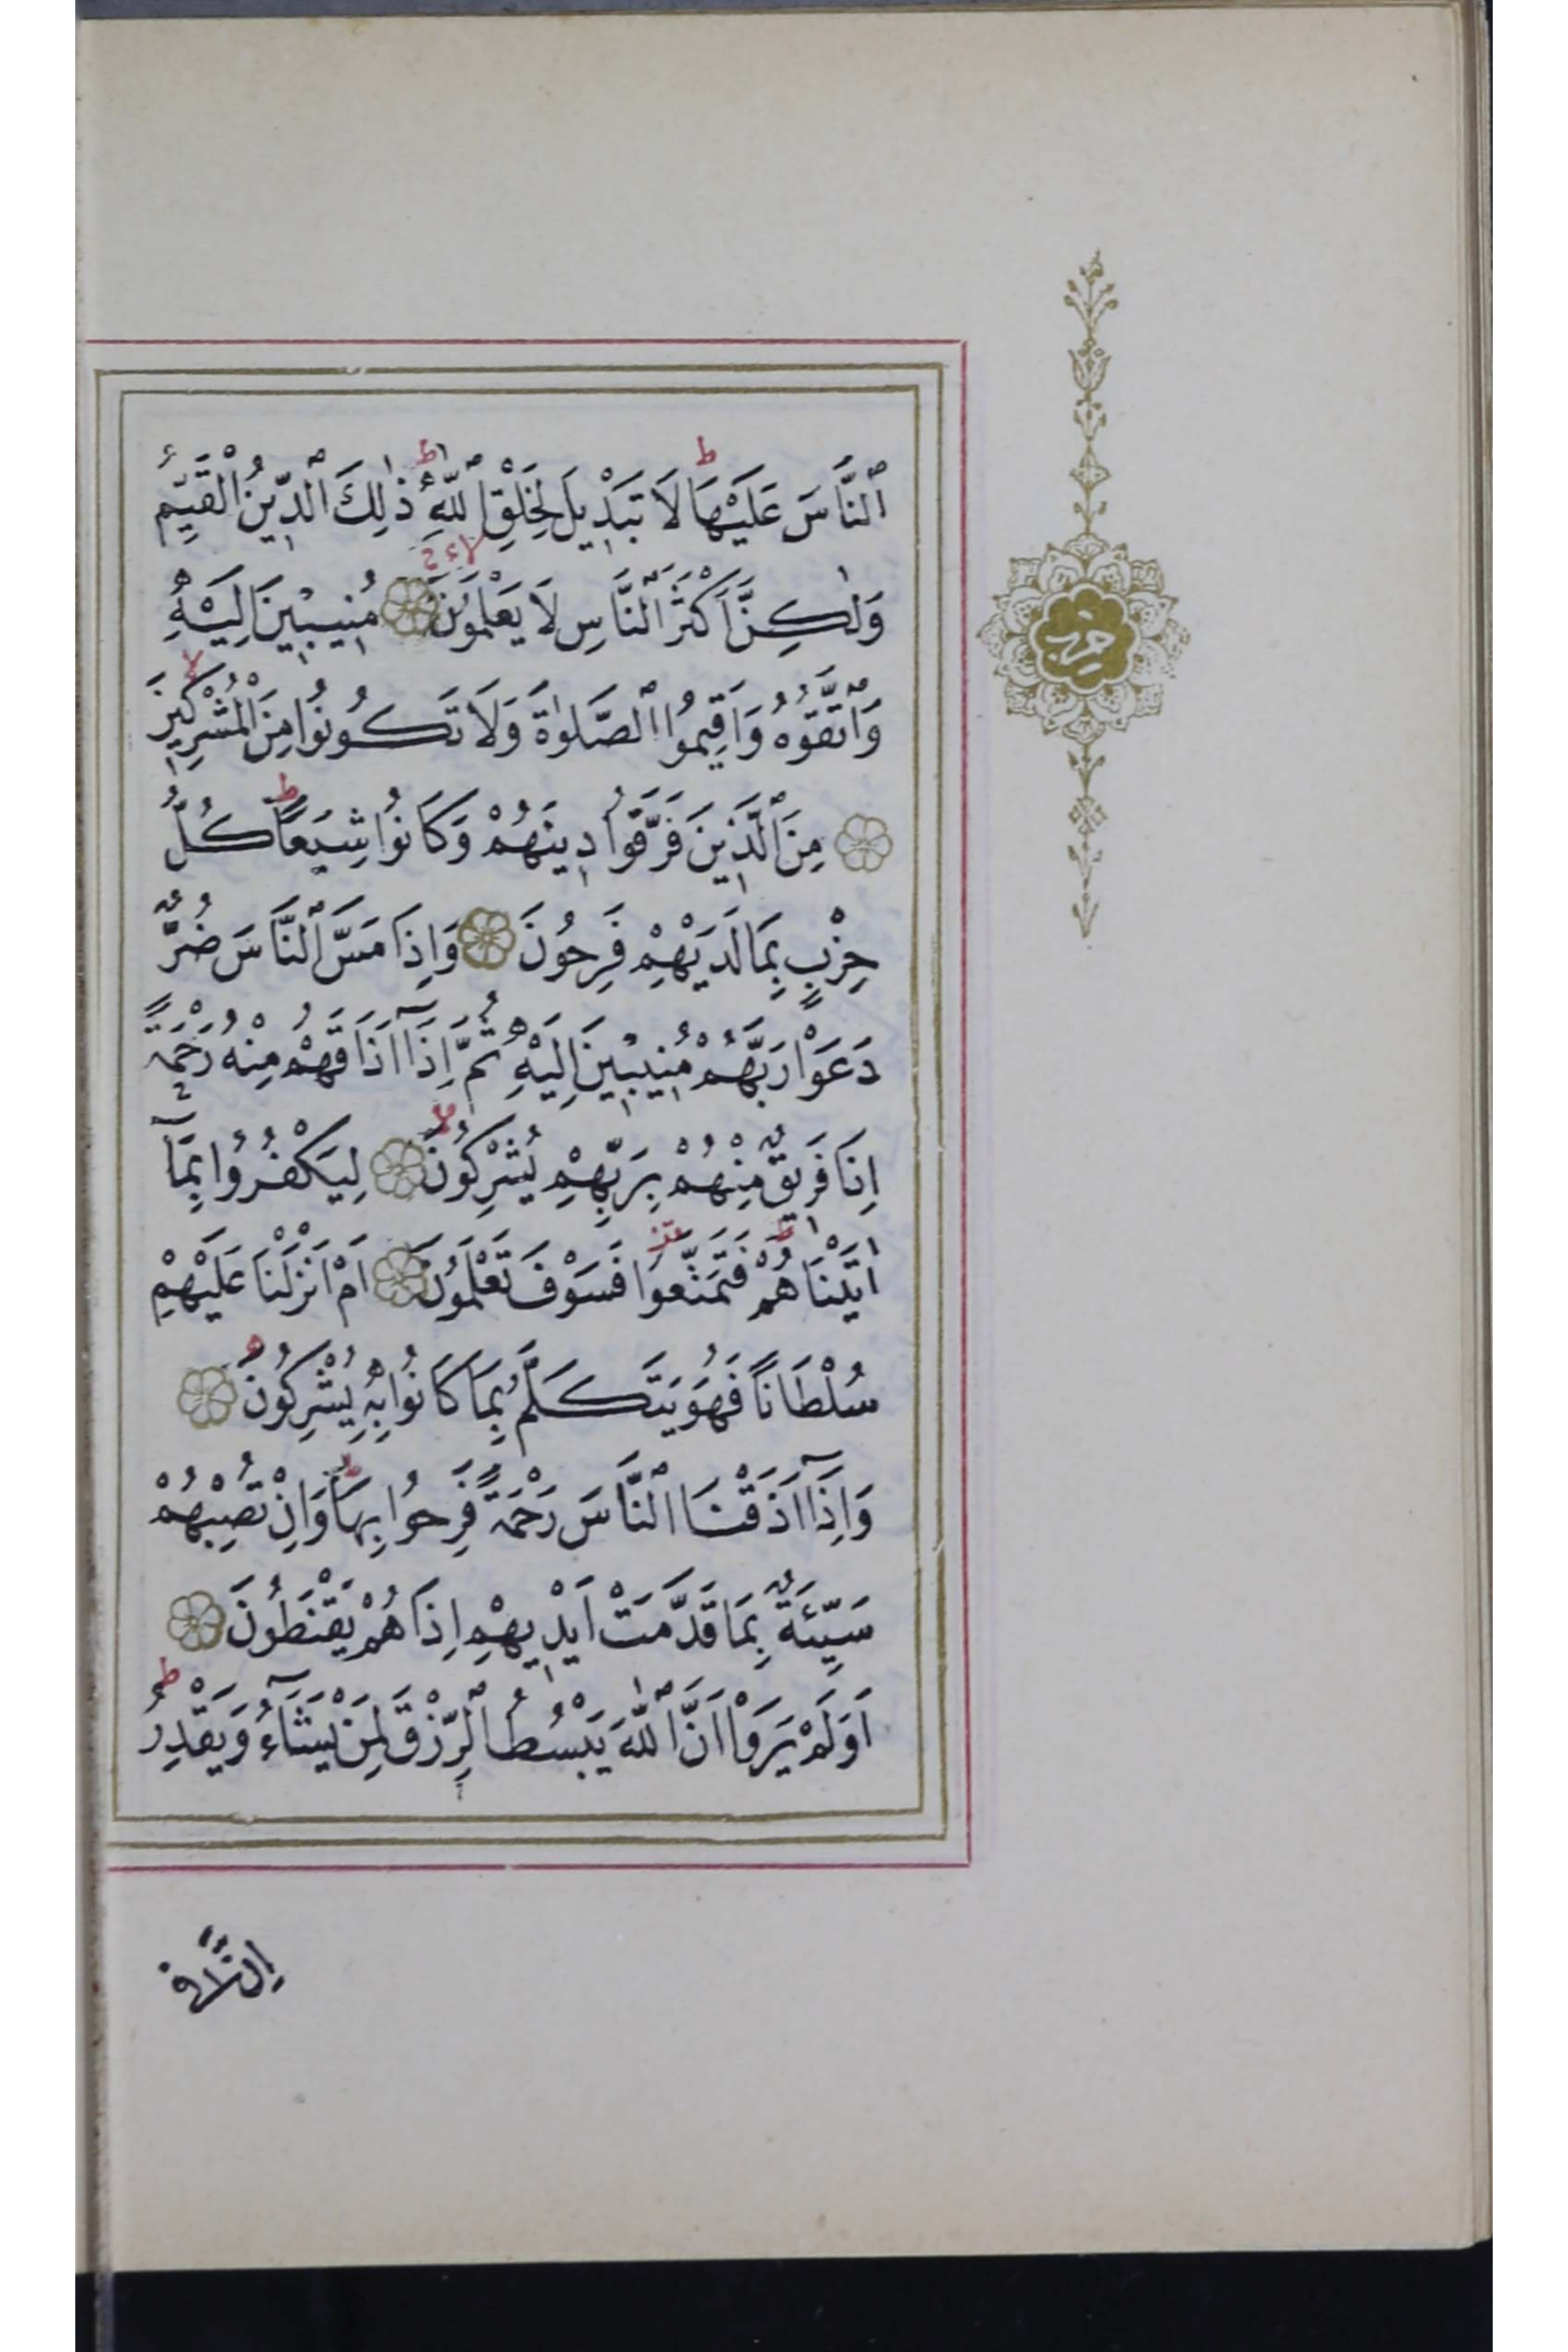 ٱلنَّاسَ عَلَيْهَا ط لَا تَبْدٖيلَ لِخَلْقِ ٱللّٰهِ ط ذٰلِكَ ٱلدّٖينُ الْقَيِّمُ
وَلٰكِنَّ اَكْثَرَ ٱلنَّاسِ لَا يَعْلَمُونَ مُنٖيبٖينَ اِلَيْهِ
وَٱتَّقُوهُ وَاَقٖيمُوا ٱلصَّلٰوةَ وَلَا تَكُونُوا مِنَ الْمُشْرِكٖينَ لا
مِنَ ٱلَّذٖينَ فَرَّقُوا دٖينَهُمْ وَكَانُوا شِيَعًا ط كُلُّ
حِزْبٍ بِمَا لَدَيْهِمْ فَرِحُونَ وَاِذَا مَسَّ ٱلنَّاسَ ضُرٌّ
دَعَوْا رَبَّهُمْ مُنٖيبٖينَ اِلَيْهِ ثُمَّ اِذَٓا اَذَاقَهُمْ مِنْهُ رَحْمَةً
اِذَا فَرٖيقٌ مِنْهُمْ بِرَبِّهِمْ يُشْرِكُونَ لا لِيَكْفُرُوا بِمَٓا
اٰتَيْنَاهُمْ ط فَتَمَتَّعُوا فَسَوْفَ تَعْلَمُونَ اَمْ اَنْزَلْنَا عَلَيْهِمْ
سُلْطَانًا فَهُوَ يَتَكَلَّمُ بِمَا كَانُوا بِهٖ يُشْرِكُونَ
وَاِذَٓا اَذَقْنَا ٱلنَّاسَ رَحْمَةً فَرِحُوا بِهَا ط وَاِنْ تُصِبْهُمْ
سَيِّئَةٌ بِمَا قَدَّمَتْ اَيْدٖيهِمْ اِذَا هُمْ يَقْنَطُونَ
اَوَلَمْ يَرَوْا اَنَّ ٱللّٰهَ يَبْسُطُ ٱلرِّزْقَ لِمَنْ يَشَٓاءُ وَيَقْدِرُ ط
حزب
اِنَّ فٖي